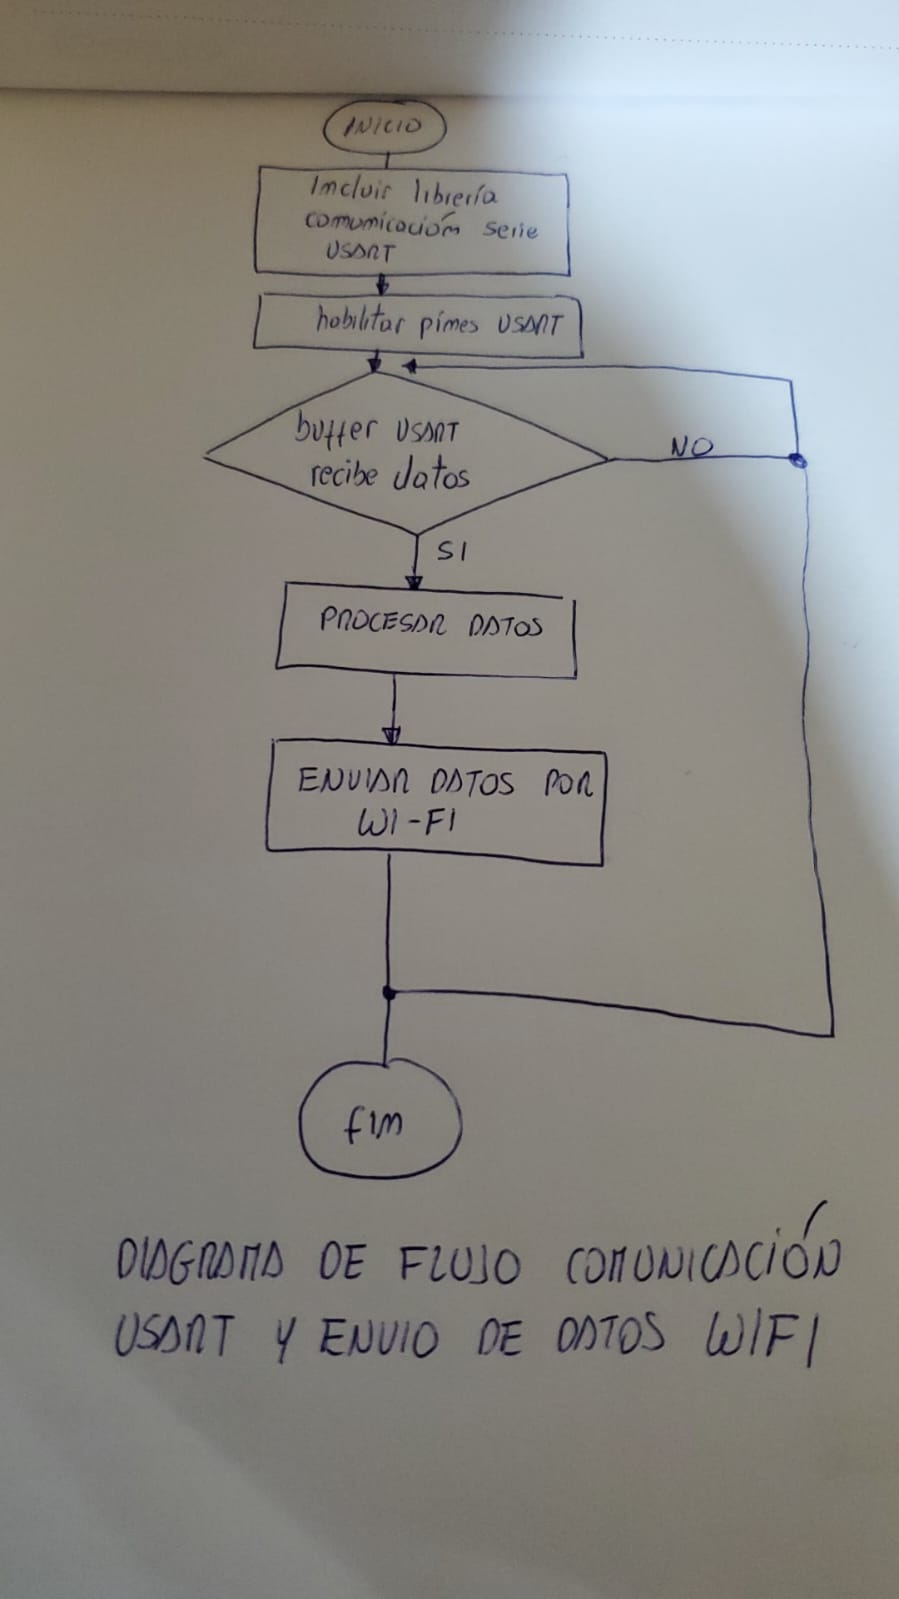 INICIO
Incluir librería
comunicación serie
USART
habilitar pines USART
buffer USART
recibe datos
NO
SI
PROCESAR DATOS
ENVIAR DATOS POR
WI-FI
fin
DIAGRAMA DE FLUJO COMUNICACIÓN
USART Y ENVIO DE DATOS WIFI